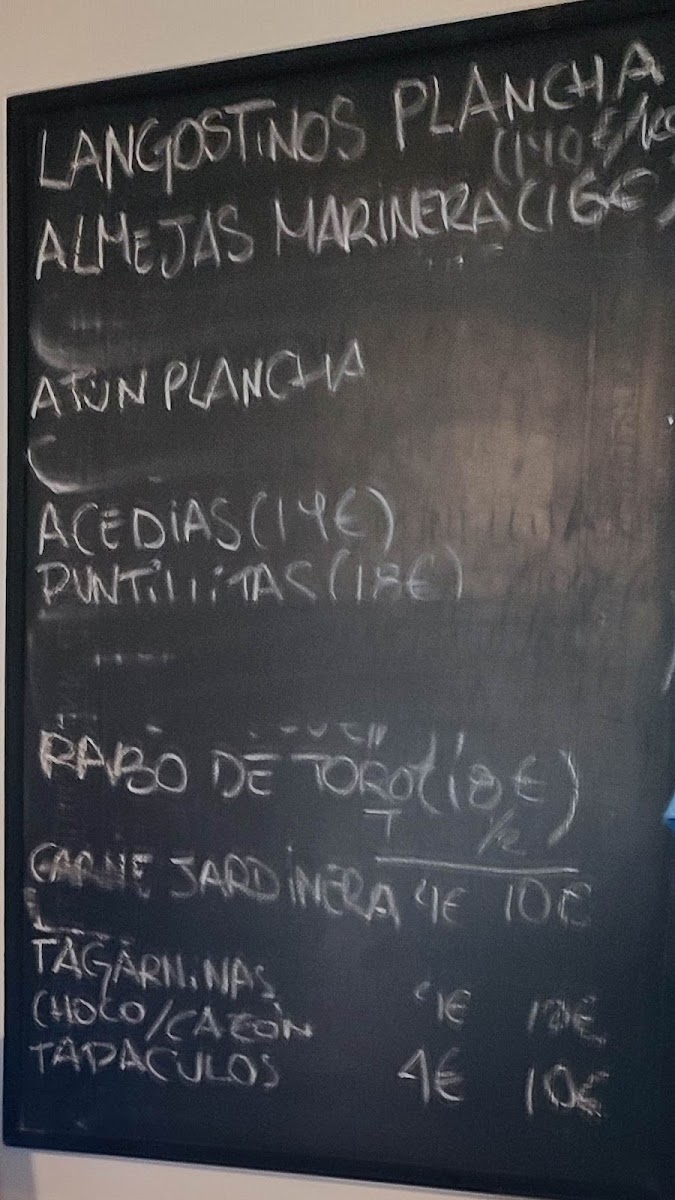 LANGOSTINOS PLANCHA
(140€/KG
ALMEJAS MARINERA (16€
ATÚN PLANCHA
ACEDIAS (14€)
PUNTILLITAS (18€)
RABO DE TORO (18€)
T 1/2
CARNE JARDINERA 4€ 10€
TAGARNINAS
CHOCO/CAZÓN 4€ 10€
TAPACULOS 4€ 10€